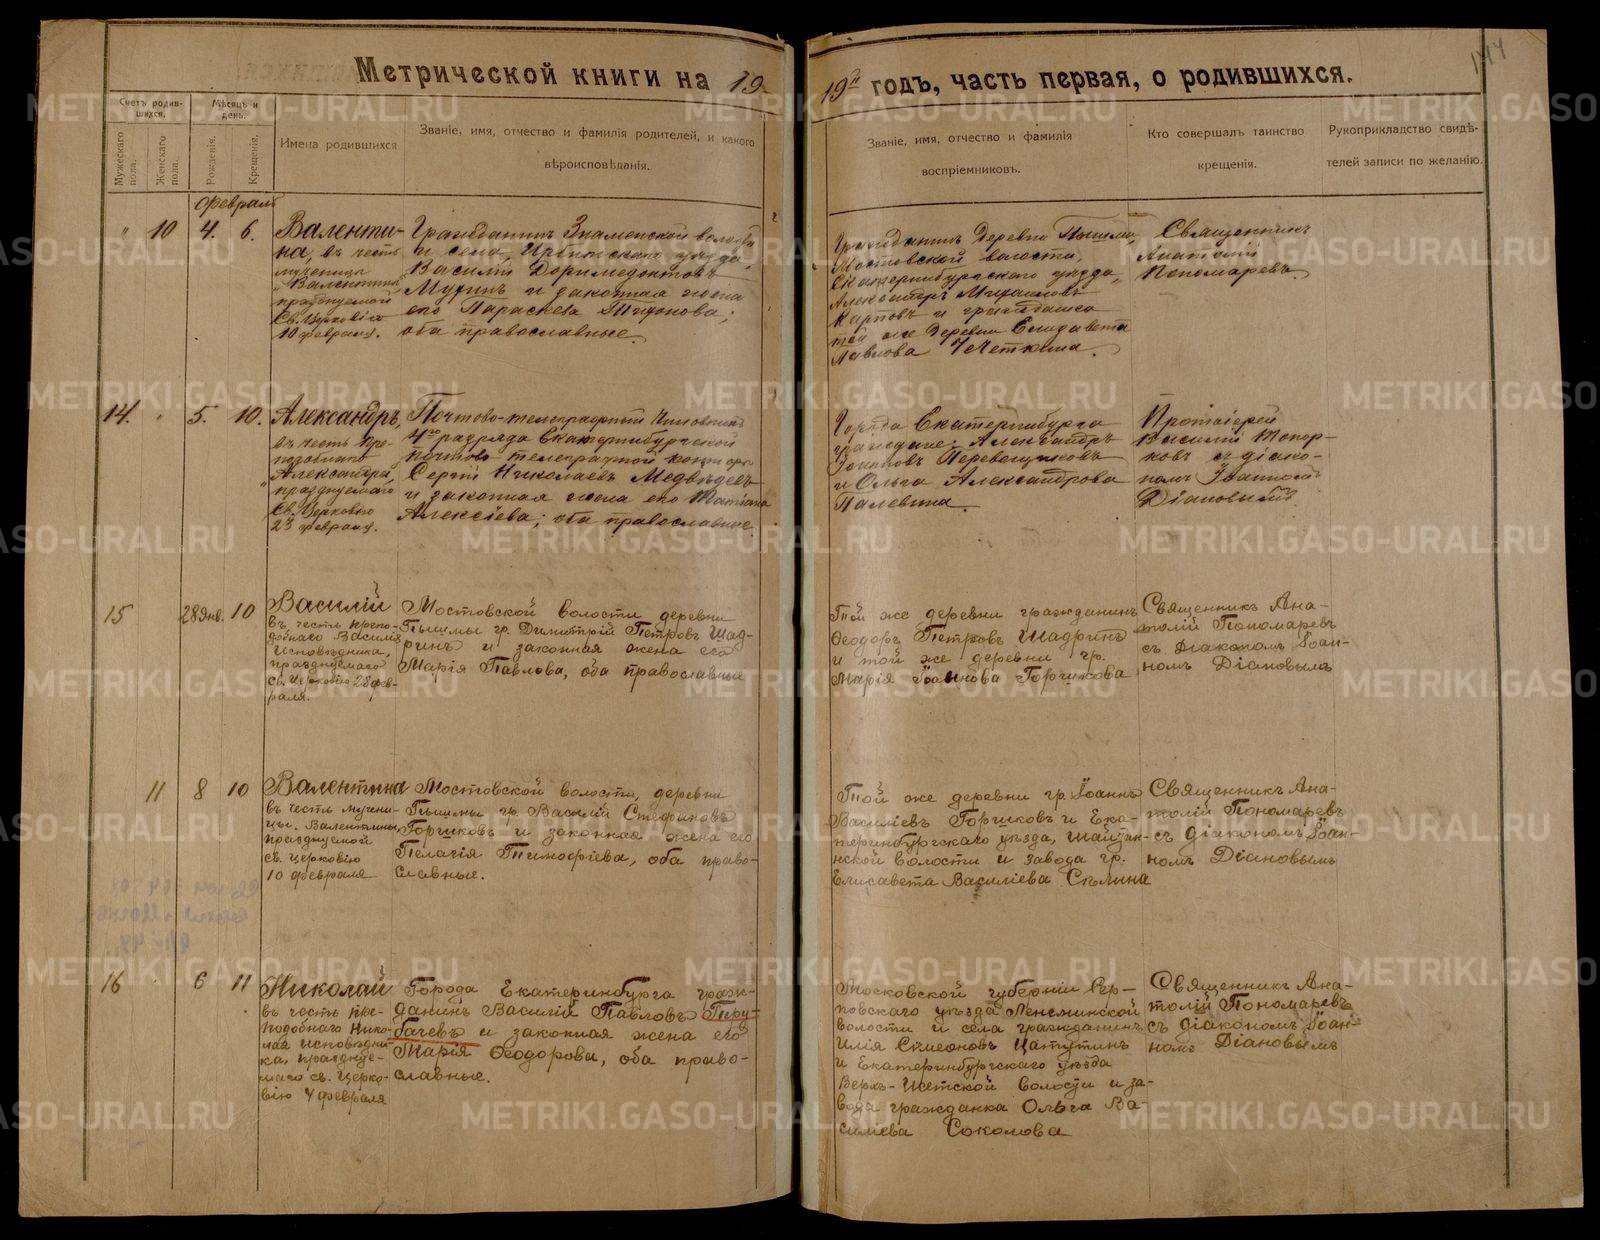 Метрической книги на 19
19й годъ, часть первая, о родившихся.
144
Счетъ родив-
шихся.
Мѣсяцъ и
день.
Мужескаго
пола.
Женскаго
пола.
Рожденія.
Крещенія.
Имена родившихся
Званіе, имя, отчество и фамилія родителей, и какого
вѣроисповѣданія.
Званіе, имя, отчество и фамилія
воспріемниковъ.
Кто совершалъ таинство
крещенія.
Рукоприкладство свидѣ-
телей записи по желанію.
Февраль
" 10 4. 6.
Валенти-
на, въ честь
мученицы
Валентины,
празднуемой
Св. Церковію
10 февраля.
Гражданинъ Знаменской волости
и села, Ирбитскаго уѣзда,
Василій Доримедонтовъ
Муринъ и законная жена
его Параскева Тихонова;
оба православные.
Гражданинъ Деревни Пышмы,
Мостовской волости,
Екатеринбургскаго уѣзда,
Александръ Михаиловъ
Карповъ и гражданка
той же Деревни Елизавета
Павлова
Священникъ
Анатолій
Пономаревъ.
14. " 5. 10.
Александръ,
въ честь пре-
подобнаго
Александра,
празднуемаго
Св. Церковію
23 февраля.
Почтово-телеграфный Чиновникъ
4го разряда Екатеринбургской
почтово телеграфной конторы
Сергій Николаевъ Медвѣдевъ
и законная жена его Татіана
Алексіева; оба православные
Города Екатеринбурга
граждане: Александръ
Перевощиковъ
и Ольга Александрова
Палевина.
Протоіерей
Василій Топор-
ковъ съ діако-
номъ Іоанномъ
Діановымъ
15 28 Янв. 10
Василій
въ честь препо-
добнаго Василія
Исповѣдника,
празднуемаго
св. Церковію 28 фев-
раля.
Мостовской волости деревни
Пышмы гр. Димитрій Петровъ Шад-
ринъ и законная жена его
Марія Павлова, оба православные
Той же деревни гражданинъ
Ѳеодоръ Петровъ Шадринъ
и той же деревни гр.
Марія Іоаннова Горчикова
Священникъ Ана-
толій Пономаревъ
съ Діакономъ Іоан-
номъ Діановымъ
11 8 10
Валентина
въ честь мучени-
цы Валентины,
празднуемой
св. церковію
10 февраля
Мостовской волости, деревни
Пышмы гр. Василій Стефановъ
Горчиковъ и законная жена его
Пелагія Тимофіева, оба право-
славные.
Той же деревни гр. Іоаннъ
Василіевъ Горчиковъ и Ека-
теринбургскаго уѣзда, Шайтан-
нской волости и завода гр.
Елисавета Василіева Сѣлина
Священникъ Ана-
толій Пономаревъ
съ діакономъ Іоан-
номъ Діановымъ
16 " 6 11
Николай
въ честь пре-
подобнаго Нико-
лая исповѣдни-
ка, праздне-
маго св. Церко-
вію 4 февраля
Города Екатеринбурга граж-
данинъ Василій Павловъ Тру-
бачевъ и законная жена его
Марія Ѳеодорова, оба право-
славные.
Московской губерніи Сер-
повскаго уѣзда
волости и села гражданинъ
Илія Симеоновъ
и Екатеринбургскаго уѣзда
Верхъ-Исетской волости и за-
вода гражданка Ольга Ва-
силіева Соколова
Священникъ Ана-
толій Пономаревъ
съ діакономъ Іоан-
номъ Діановымъ
METRIKI.GASO-URAL.RU